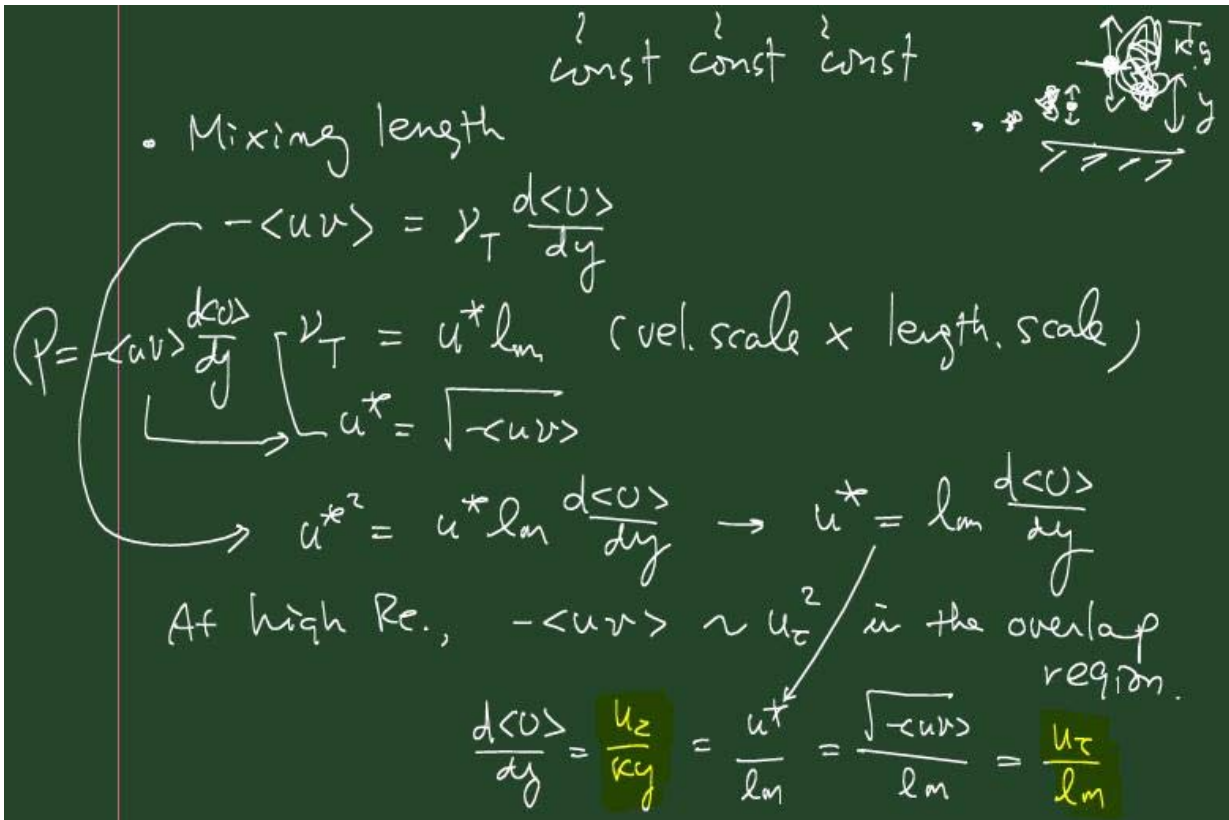 const const const
κy
y
• Mixing length
-<uv> = ν_T d<U>/dy
P = -<uv> d<U>/dy
ν_T = u* l_m (vel. scale × length. scale)
u* = √-<uv>
u*² = u* l_m d<U>/dy → u* = l_m d<U>/dy
At high Re., -<uv> ~ u_τ² in the overlap
region.
d<U>/dy = u_τ/κy = u*/l_m = √-<uv>/l_m = u_τ/l_m